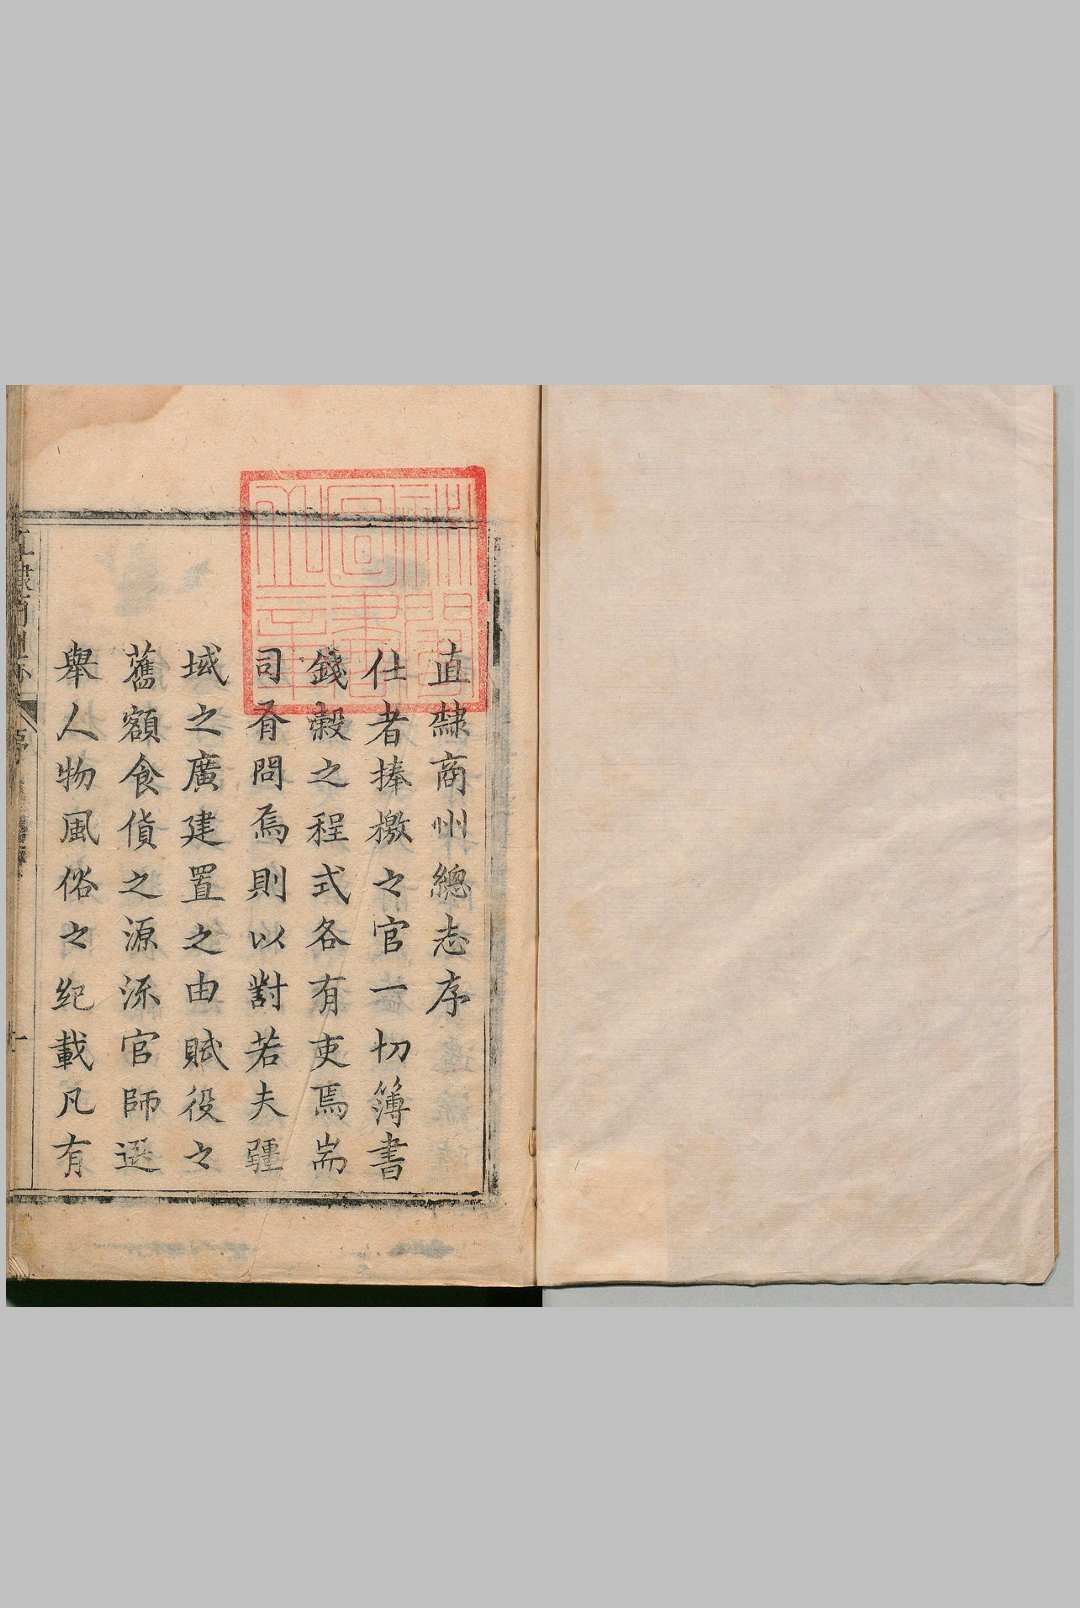 直隸商州總志序
仕者捧檄之官一切簿書
錢穀之程式各有吏焉耑
司胥問焉則以對若夫疆
域之廣建置之由賦役之
舊額食貨之源流官師選
舉人物風俗之紀載凡有